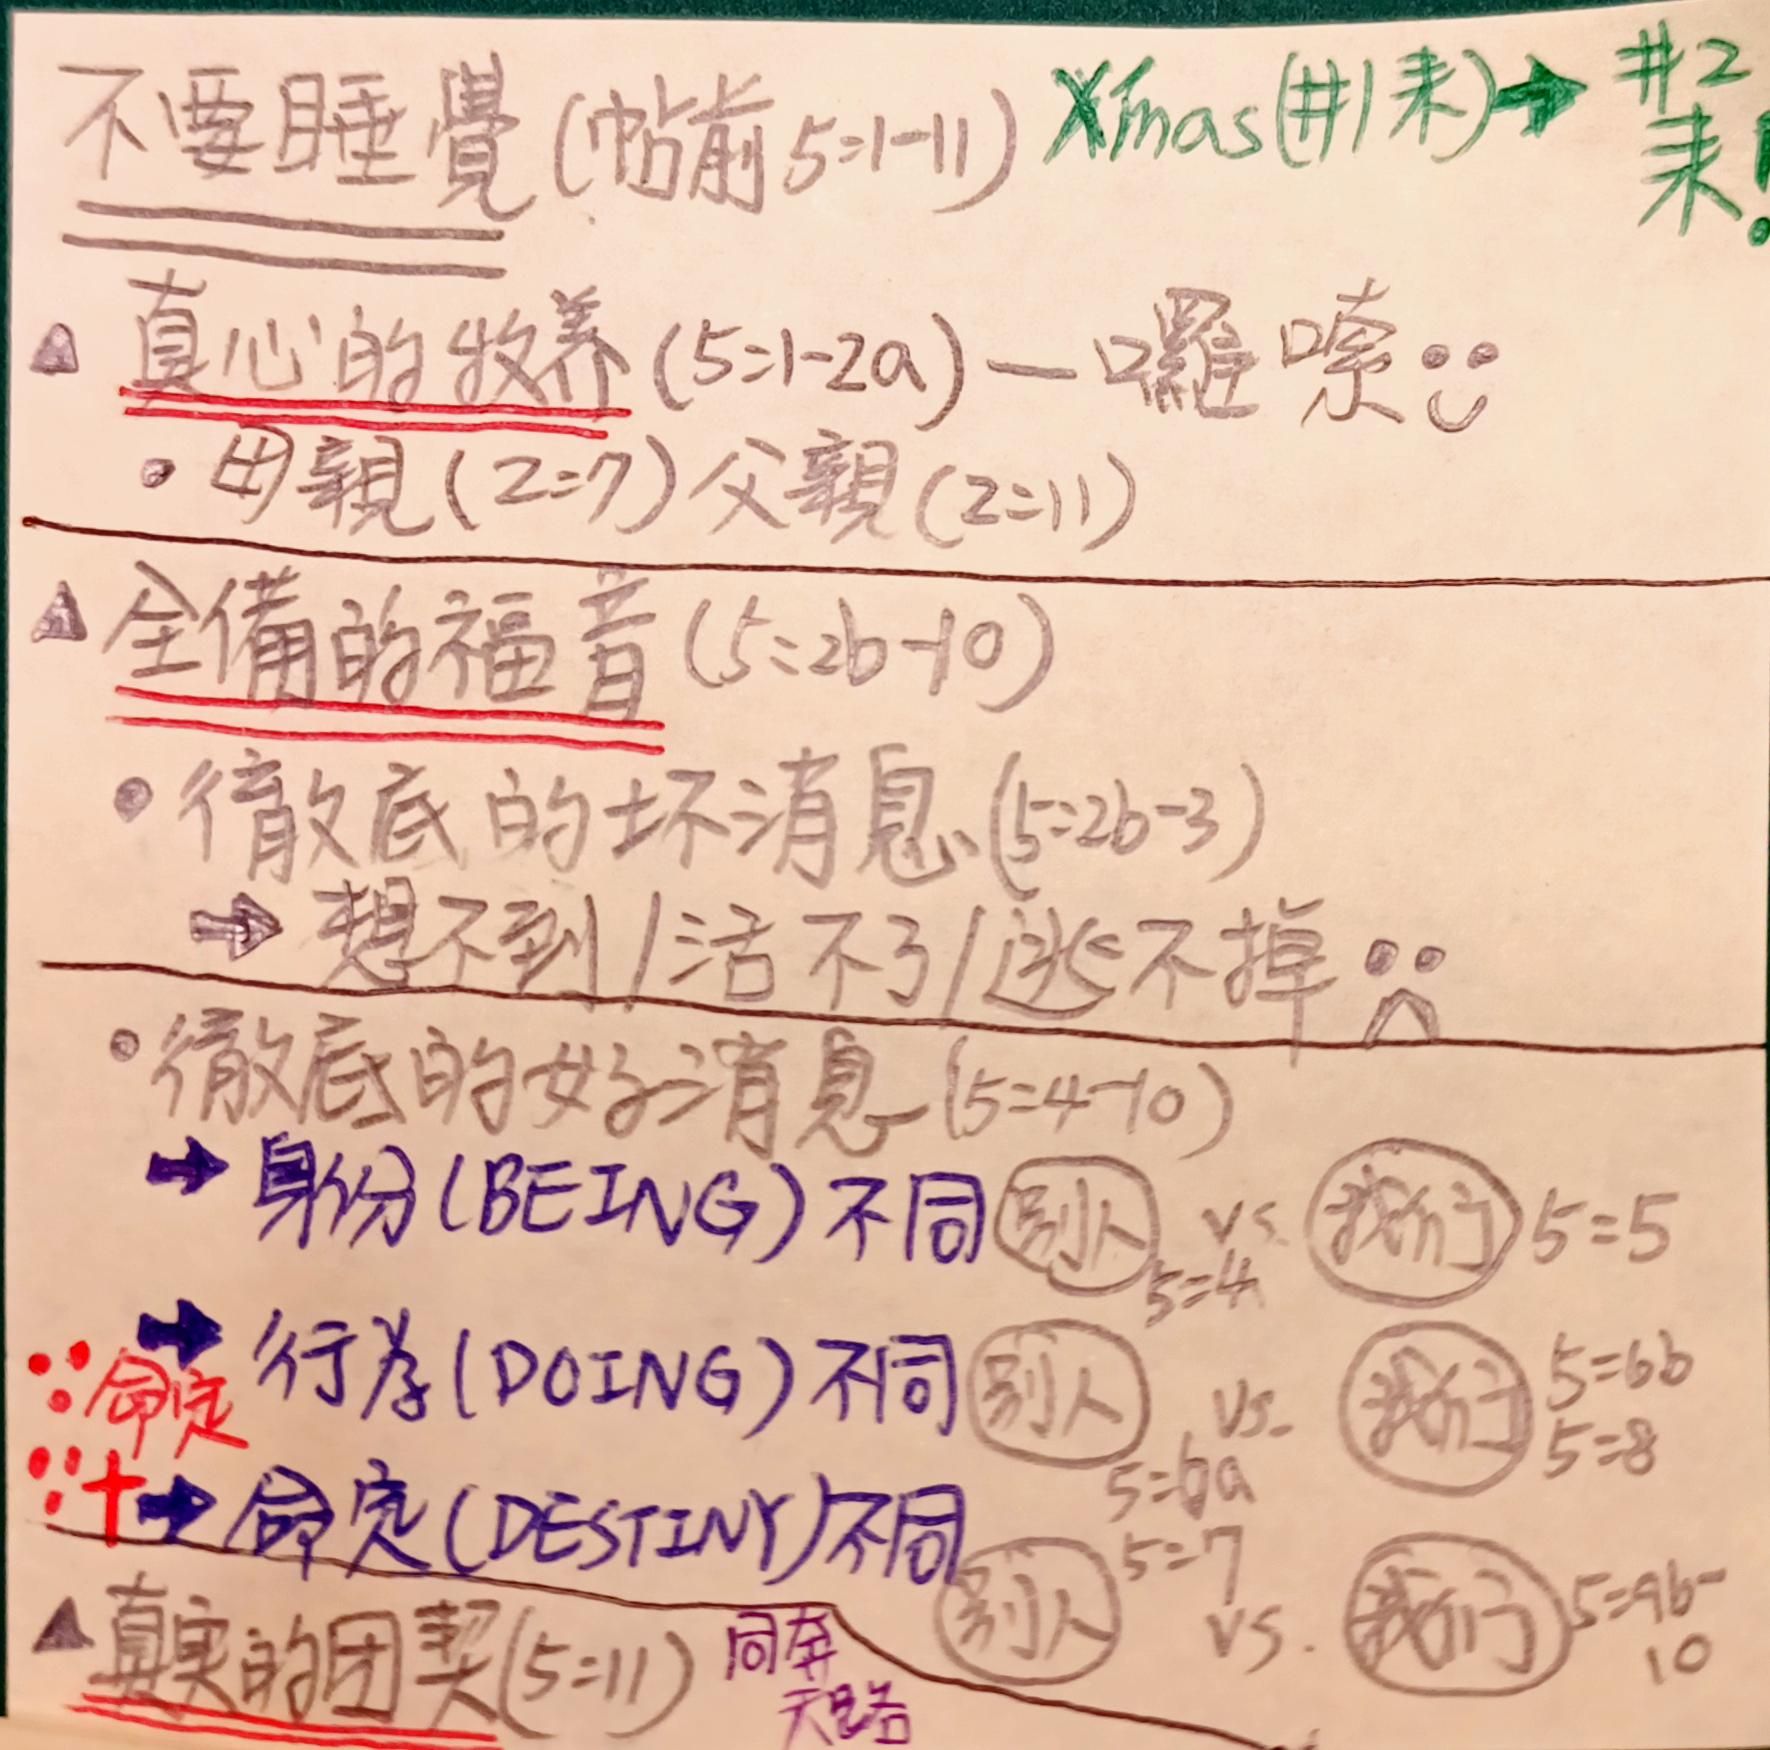 不要睡覺(帖前5:1-11) Xmas(#1来)→ #2来!
真心的牧养(5:1-2a)—囉嗦
• 母親(2:7)父親(2:11)
全備的福音(5:2b-10)
• 徹底的坏消息(5:2b-3)
→ 想不到/活不了/逃不掉
• 徹底的好消息(5:4-10)
→ 身份(BEING)不同 别人 5:4 vs. 我们 5:5
→ 行为(DOING)不同 别人 5:6a vs. 我们 5:6b 5:8
∵命定
∵十
→ 命定(DESTINY)不同 别人 5:7 vs. 我们 5:9b-10
真実的团契(5:11) 同奔天路